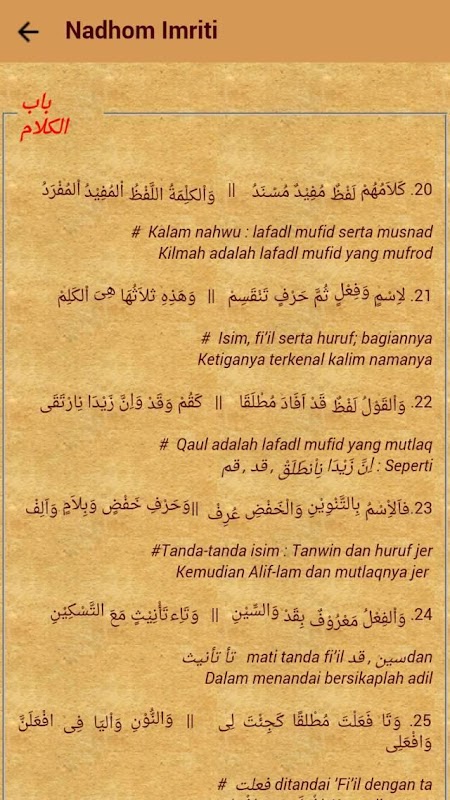 Nadhom Imriti
باب
الكلام
20. كَلاَمُهُمْ لَفْظٌ مُفِيْدٌ مُسْنَدُ || وَاْلكِلمَةُ اللَّفْظُ اْلمُفِيْدُ اْلمُفْرَدُ
# Kalam nahwu : lafadl mufid serta musnad
Kilmah adalah lafadl mufid yang mufrod
21. لاِسْمٍ وَفِعْلٍ ثُمَّ حَرْفٍ تَنْقَسِمْ || وَهَذِهِ ثلاَثُهَا هِىَ اْلكَلِمْ
# Isim, fi’il serta huruf; bagiannya
Ketiganya terkenal kalim namanya
22. وَاْلقَوْلُ لَفْظٌ قَدْ اَفَادَ مُطْلَقَا || كَقُمْ وَقَدْ وَاِنَّ زَيْدًا نِارْتَقَى
# Qaul adalah lafadl mufid yang mutlaq
Seperti : اِنَّ زَيْدَا نِاْنطَلَقْ , قد , قم
23. فَاَلاِسْمُ بِالتَّنْوِيْنِ وَالْخَفْضِ عُرِفْ || وَحَرْفِ خَفْضٍ وَبِلاَمٍ وَاَلِفْ
#Tanda-tanda isim : Tanwin dan huruf jer
Kemudian Alif-lam dan mutlaqnya jer
24. وَاْلفِعْلُ مَعْرُوفٌ بِقَدْ وَالسِّيْنِ || وَتَاءِ تَأْنِيْثٍ مَعَ التَّسْكِيْنِ
تأ تأنيث mati tanda fi’il سين , قد dan
Dalam menandai bersikaplah adil
25. وَتَا فَعَلْتَ مُطْلقًا كَجِئْتَ لِى || وَالنُّوْنِ وَاْليَا فِى افْعَلَنَّ
وَافْعَلِى
# فعلت ditandai ‘Fi’il dengan ta